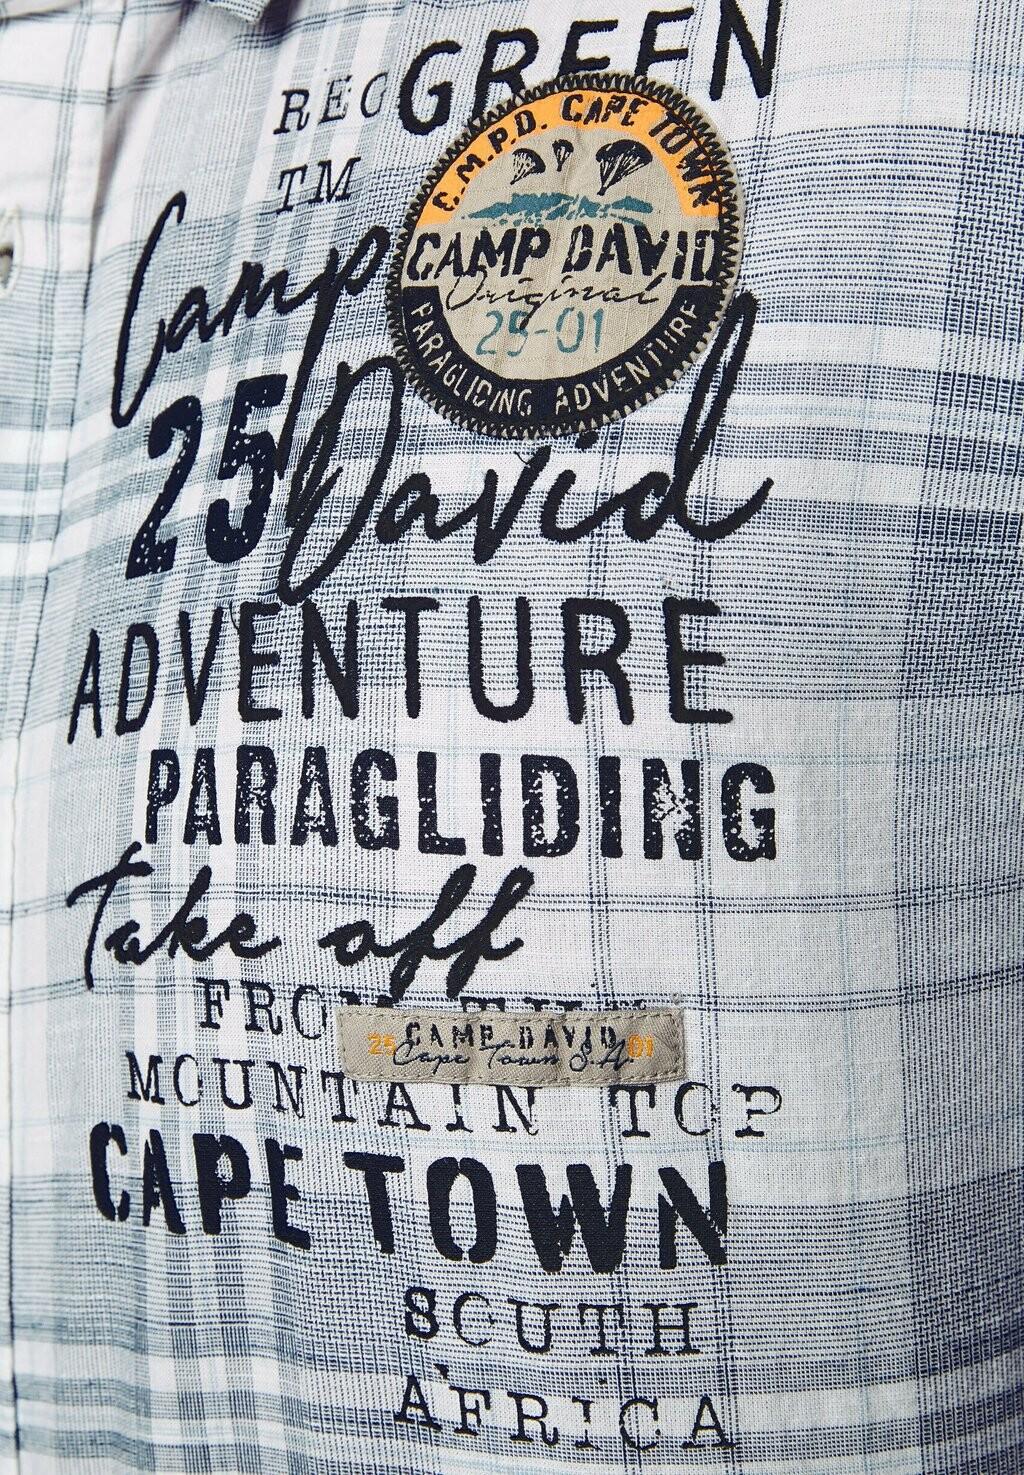 GREEN
REG
TM
C.M.P.D. CAPE TOWN
CAMP DAVID
Original
25-01
PARAGLIDING ADVENTURE
Camp
25 David
ADVENTURE
PARAGLIDING
Take off
FROM THE
25 CAMP DAVID 01
Cape Town S.A
MOUNTAIN TOP
CAPE TOWN
SOUTH
AFRICA